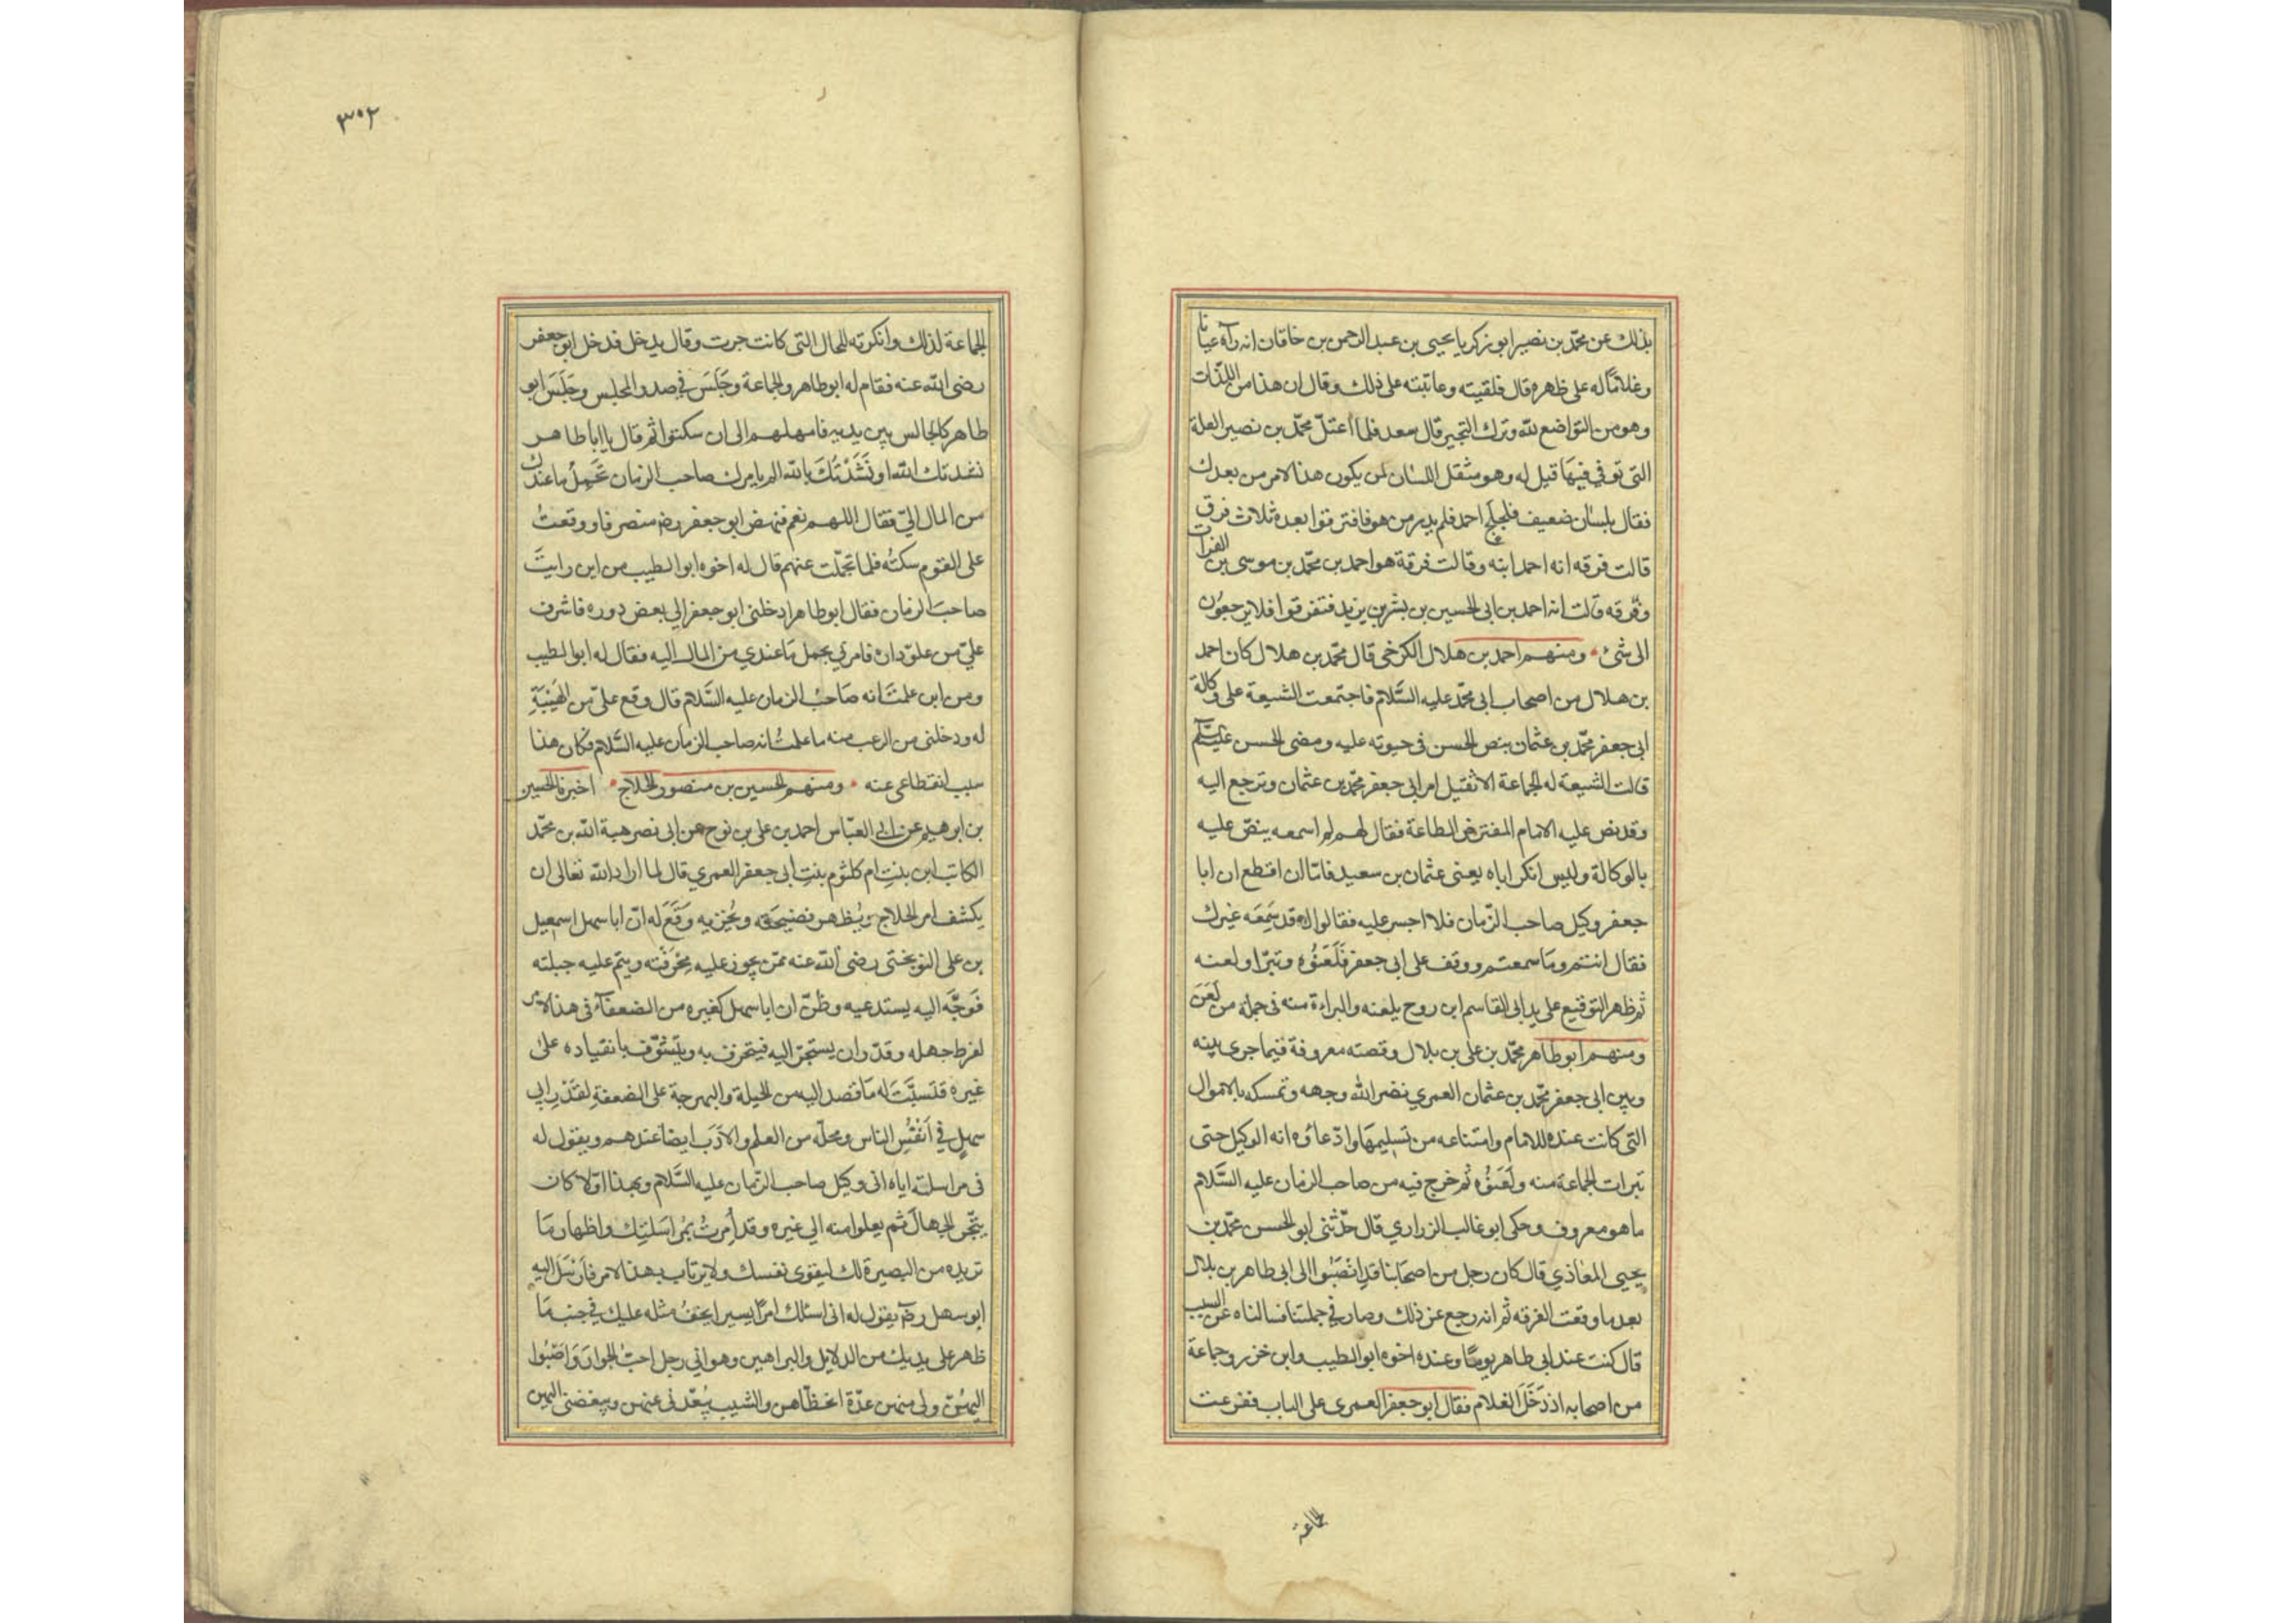 بذلك عن محمّد بن نصير ابو زكريا يحيى بن عبد الرحمن بن خاقان انه رآه عيانا
وغلامًا له على ظهره قال فلقيته وعاتبته على ذلك وقال ان هذا من اللذّات
وهو من التواضع لله وترك التجبر قال سعد فلما اعتلّ محمّد بن نصير العلة
التى توفي فيها قيل له وهو مثقل اللسان لمن يكون هذا الامر من بعدك
فقال بلسان ضعيف فلجلج احمد فلم يدر من هو فافترقوا بعده ثلاث فرق
قالت فرقه انه احمد ابنه وقالت فرقة هو احمد بن محمّد بن موسى بن الفرات
وفرقه قالت انه احمد بن ابى الحسين بن بشر بن يزيد فتفرقوا فلا يرجعون
الى شئ ومنهم احمد بن هلال الكرخى قال محمّد بن هلال كان احمد
بن هلال من اصحاب ابى محمّد عليه السَّلام فاجتمعت الشيعة على وكالة
ابى جعفر محمّد بن عثمان بنص الحسن فى حيوته عليه ومضى الحسن عليه السلام
قالت الشيعة له الجماعة الا تقبل امر ابى جعفر محمّد بن عثمان وترجع اليه
وقد نص عليه الامام المفترض الطاعة فقال لهم لم اسمعه ينصّ عليه
بالوكالة وليس انكر اباه يعنى عثمان بن سعيد فامّا ان اقطع ان ابا
جعفر وكيل صاحب الزّمان فلا اجسر عليه فقالوا له قد سَمِعَه غيرك
فقال انتم وما سمعتم ووقف على ابى جعفر فَلَعَنُوه وتبرّاو لعنه
ثم ظهر التوقيع على يد ابى القاسم ابن روح بلعنه والبراءة منه فى جملة من لَعَنَ
ومنهم ابو طاهر محمّد بن على بن بلال وقصته معروفة فيما جرى بينه
وبين ابى جعفر محمّد بن عثمان العمري نضر الله وجهه وتمسكه بالاموال
التى كانت عنده للامام وامتناعه من تسليمها وادّعاؤه انه الوكيل حتى
تبرات الجماعة منه ولَعَنُوْه ثم خرج فيه من صاحب الزمان عليه السَّلام
ما هو معروف وحكى ابو غالب الزراري قال حدّثنى ابو الحسن محمّد بن
يحيى المعاذي قال كان رجل من اصحابنا قد انضَبُوا الى ابى طاهر بن بلال
بعد ما وقعت الفرقه ثم انه رجع عن ذلك وصار في جملتنا فسالناه عن السبب
قال كنت عند ابى طاهر يومًا وعنده اخوه ابو الطيب وابن خزر وجماعة
من اصحابه اذ دَخَلَ الغلام فقال ابو جعفر العمرى على الباب ففزعت
الجماعة
٣٠٢
الجماعة لذلك وانكرته للحال التى كانت جرت وقال يدخل فدخل ابو جعفر
رضى الله عنه فقام له ابو طاهر والجماعة وجَلَسَ في صدر المجلس وجَلَسَ ابو
طاهر كالجالس بين يديه فامهلهم الى ان سكتوا ثم قال يا ابا طاهر
نشدتك الله او نَشَدْتُكَ بالله الم يامرك صاحب الزمان تحمل ما عندك
من المال اليّ فقال اللهم نعم فنهض ابو جعفر رضه منصرفا ووقعتُ
على القوم سكتُه فلما تجلّت عنهم قال له اخوه ابو الطيب من اين رايتَ
صاحبَ الزمان فقال ابو طاهر ادخلنى ابو جعفر الي بعض دوره فاشرف
عليّ من علوّ داره فامرني بحمل مَا عندي من المال اليه فقال له ابو الطيب
ومن اين علمتَ انه صَاحبُ الزمان عليه السَّلام قال وقع عليّ من الهَيْبَةِ
له ودخلنى من الرعب منه ما علمتُ انه صاحب الزمان عليه السَّلام فكان هذا
سبب انقطاعى عنه ومنهم الحسين بن منصور الحلاج اخبرنا الحسين
بن ابرهيم عن ابى العبّاس احمد بن على بن نوح عن ابى نصر هبة الله بن محمّد
الكاتب ابن بنت ام كلثوم بنت ابى جعفر العمري قال لما اراد الله تعالى ان
يكشف امر الحلاج ويُظهر فضيحَته ويُخزيه وَقَعَ له انّ ابا سهل اسمعيل
بن على النوبختى رضى الله عنه ممّن يجوز عليه مخرقته ويتم عليه حيلته
فَوَجَّهَ اليه يستدعيه وظنّ ان ابا سهل كغيره من الضعفآء فى هذا الامر
لفرط جهله وقدّر ان يستجرّ اليه فيتخرف به ويتسوّف بانقياده على
غيره فتسبّبَ له مَا قصد اليه من الحيلة والبهرجة على الضعفةِ لقَدْرِ ابي
سهل في اَنْفُسِ الناس ومحلّه من العلم والادَب ايضا عندهم ويقول له
فى مراسلته اياه انى وكيل صاحب الزّمان عليه السَّلام وبهذا اوّلا كان
يتجّر الجهالَ ثم يعلوا منه الي غيره وقد اُمرتُ بمُراسَلتِك واظهار مَا
تريده من البصيرة لك ليقوى نفسك ولا يرتاب بهذا الامر فارْسَلَ اليه
ابو سهل رضه يقول له انى اسئلك امرًا يسيرا يخفُ مثله عليك في جنب مَا
ظهر على يديك من الدلايل والبراهين وهو اني رجل احبّ الجوارَ وَاَصْبُوا
اليهُنّ ولى منهن عدّة اتحظّاهن والشيب يُبَعّدنى عنهن ويبغضنى اليهن